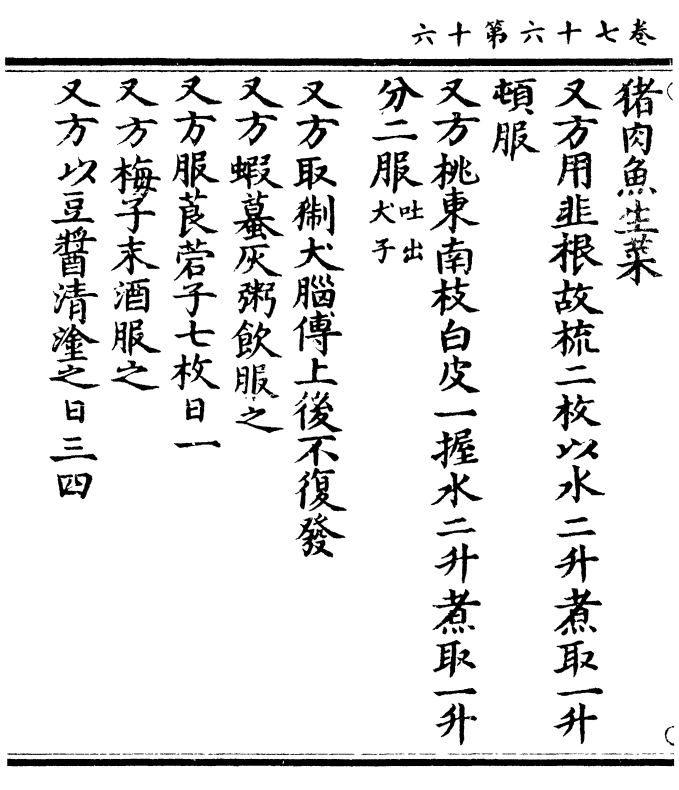 卷七十六第十六
猪肉魚生菜
又方用韭根故梳二枚以水二升煮取一升
頓服
又方桃東南枝白皮一握水二升煮取一升
分二服吐出犬子
又方取猘犬腦傅上後不復發
又方蝦蟇灰粥飲服之
又方服莨菪子七枚日一
又方梅子末酒服之
又方以豆醬清塗之日三四